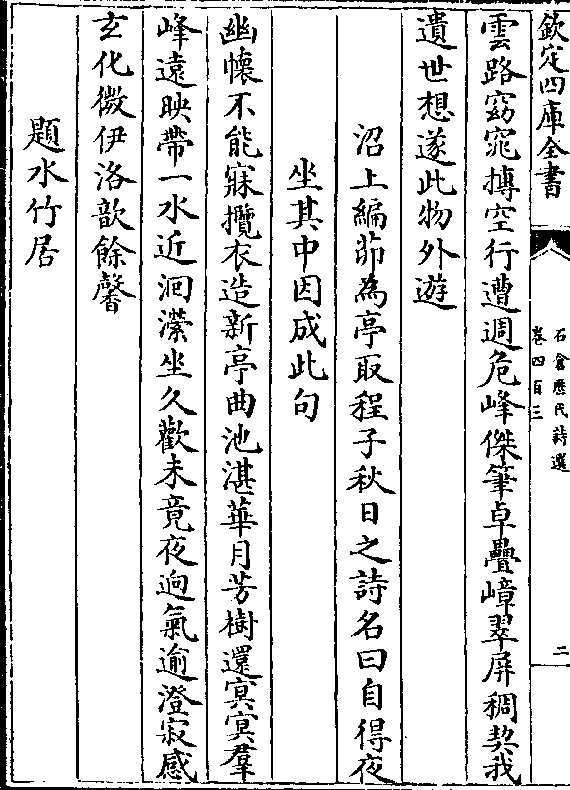 欽定四庫全書
石倉歷代詩選
卷四百三
二
雲路窈窕摶空行遭週危峰傑筆卓疊嶂翠屏稠契我
遺世想遂此物外遊
沼上編茆為亭取程子秋日之詩名曰自得夜
坐其中因成此句
幽懷不能寐攬衣造新亭曲池湛華月芳樹還冥冥羣
峰遠映帶一水近洄瀠坐久歡未竟夜逈氣逾澄寂感
玄化微伊洛歆餘馨
題水竹居